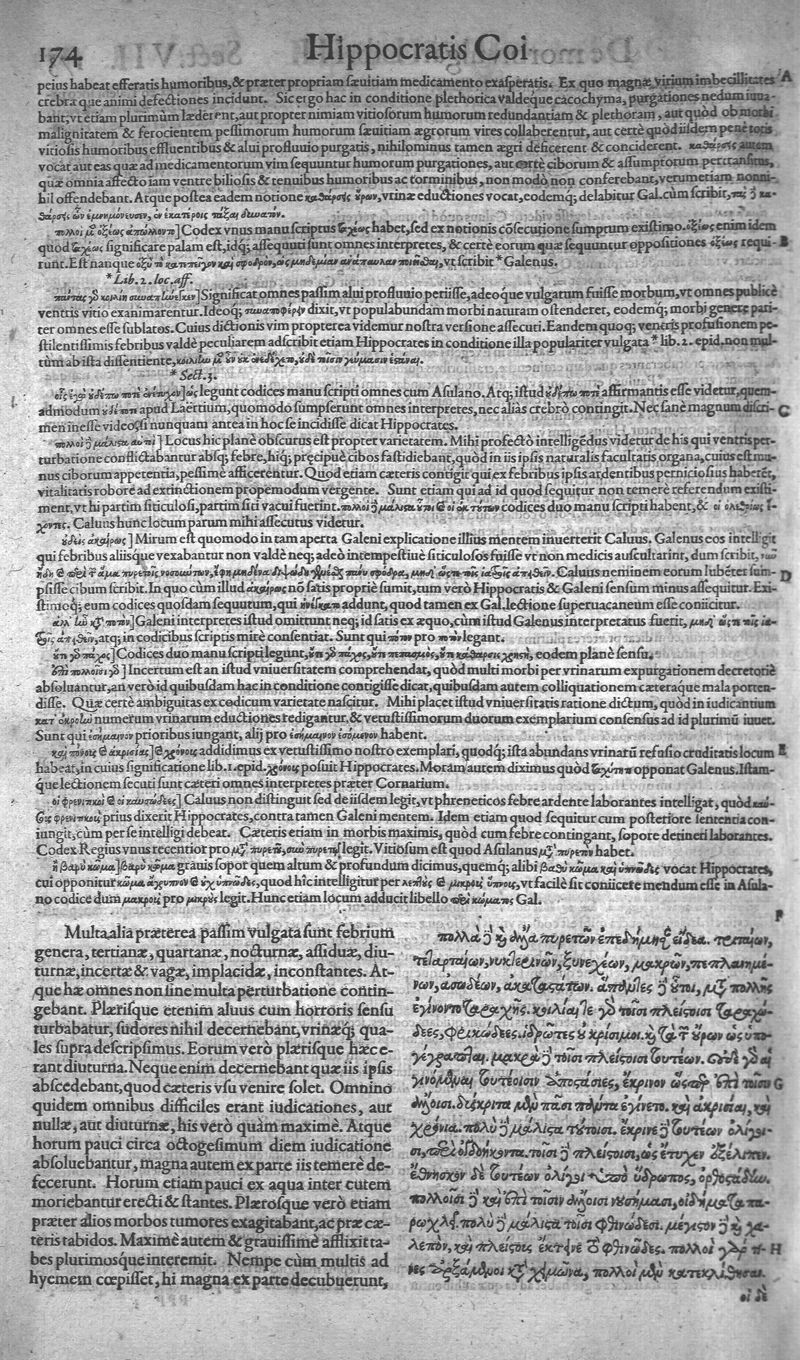 174 Hippocratis Coi
peius habeat efferatis humoribus, & præter propriam sæuitiam medicamento exasperatis. Ex quo magnæ virium imbecillitates A
crebræque animi defectiones incidunt. Sic ergo hac in conditione plethorica valdeque cacochyma, purgationes nedum iuua-
bant, vt etiam plurimùm læderent, aut propter nimiam vitiosorum humorum redundantiam & plethoram, aut quòd ob morbi
malignitatem & ferocientem pessimorum humorum sæuitiam ægrorum vires collaberentur, aut certè quòd iisdem penè totis
vitiosis humoribus effluentibus & alui profluuio purgatis, nihilominus tamen ægri deficerent & conciderent. καθάρσεις autem
vocat aut eas quæ ad medicamentorum vim sequuntur humorum purgationes, aut certè ciborum & assumptorum pertransitus,
quæ omnia affecto iam ventre biliosis & tenuibus humoribus ac torminibus, non modò non conferebant, verumetiam nonni-
hil offendebant. Atque postea eadem notione καθάρσεις ὕρων, vrinæ eductiones vocat, eodemq; delabitur Gal. cùm scribit,
] Codex vnus manu scriptus ταχέως habet, sed ex notionis cōsecutione sumptum existimo. ὀξέως enim idem
quod ταχέως significare palam est, idq; assequuti sunt omnes interpretes, & certè eorum quæ sequuntur oppositiones ὀξέως requi- B
runt. Est nanque vt scribit * Galenus.
* Lib. 2. loc. aff.
] Significat omnes passim alui profluuio periisse, adeoque vulgarum fuisse morbum, vt omnes publicè
ventris vitio exanimarentur. Ideoq; dixit, vt populabundam morbi naturam ostenderet, eodemq; morbi genere pari-
ter omnes esse sublatos. Cuius dictionis vim propterea videmur nostra versione assecuti. Eandem quoq; veneris profusionem pe-
stilentissimis febribus valdè peculiarem adscribit etiam Hippocrates in conditione illa populariter vulgata * lib. 2. epid. non mul-
tùm ab ista dissentiente,
* Sect. 3.
] ὡς legunt codices manu scripti omnes cum Asulano. Atq; istud affirmantis esse videtur, quem-
admodum apud Laërtium, quomodo sumpserunt omnes interpretes, nec aliàs crebrò contingit. Nec sanè magnum discri- C
men inesse videtur, si nunquam antea in hoc se incidisse dicat Hippocrates.
] Locus hic planè obscurus est propter varietatem. Mihi profectò intelligēdus videtur de his qui ventris per-
turbatione conflictabantur absq; febre, hiq; præcipuè cibos fastidiebant, quòd in iis ipsis naturalis facultatis organa, cuius est mu-
nus ciborum appetentia, pessimè afficerentur. Quod etiam cæteris contigit qui ex febribus ipsis ardentibus perniciosius haberēt,
vitalitatis robore ad extinctionem propemodum vergente. Sunt etiam qui ad id quod sequitur non temerè referendum existi-
ment, vt hi partim siticulosi, partim siti vacui fuerint. codices duo manu scripti habent, &
Caluus hunc locum parum mihi assecutus videtur.
] Mirum est quomodo in tam aperta Galeni explicatione illius mentem inuerterit Caluus. Galenus eos intelligit
qui febribus aliisque vexabantur non valdè neq; adeò intempestiuè siticulosos fuisse vt non medicis auscultarint, dum scribit,
Caluus neminem eorum lubēter sum- D
psisse cibum scribit. In quo cùm illud ἀκαίρως nō satis propriè sumit, tum verò Hippocratis & Galeni sensum minus assequitur. Exi-
stimoq; eum codices quosdam sequutum, qui addunt, quod tamen ex Gal. lectione superuacaneum esse coniicitur.
] Galeni interpretes istud omittunt neq; id satis ex æquo, cùm istud Galenus interpretatus fuerit,
atq; in codicibus scriptis mirè consentiat. Sunt qui pro legant.
] Codices duo manu scripti legunt, eodem planè sensu.
] Incertum est an istud vniuersitatem comprehendat, quòd multi morbi per vrinarum expurgationem decretoriè
absoluantur, an verò id quibusdam hac in conditione contigisse dicat, quibusdam autem colliquationem cæteraque mala porten-
disse. Quæ certè ambiguitas ex codicum varietate nascitur. Mihi placet istud vniuersitatis ratione dictum, quòd in iudicantium
numerum vrinarum eductiones redigantur, & vetustissimorum duorum exemplarium consensus ad id plurimū iuuet.
Sunt qui prioribus iungant, alij pro habent.
] addidimus ex vetustissimo nostro exemplari, quodq; ista abundans vrinarū refusio cruditatis locum E
habeat, in cuius significatione lib. 1. epid. χρόνοις posuit Hippocrates. Moram autem diximus quòd opponat Galenus. Istam-
que lectionem secuti sunt cæteri omnes interpretes præter Cornarium.
] Caluus non distinguit sed de iisdem legit, vt phreneticos febre ardente laborantes intelligat, quòd
prius dixerit Hippocrates, contra tamen Galeni mentem. Idem etiam quod sequitur cum posteriore sententia con-
iungit, cùm per se intelligi debeat. Cæteris etiam in morbis maximis, quòd cum febre contingant, sopore detineri laborantes.
Codex Regius vnus recentior pro legit. Vitiosum est quod Asulanus habet.
] grauis sopor quem altum & profundum dicimus, quemq; alibi vocat Hippocrates,
cui opponitur quod hîc intelligitur per vt facilè sit coniicere mendum esse in Asula-
no codice dum μακροῖς pro μικροῖς legit. Hunc etiam locum adducit libello Gal.
F
Multa alia præterea passim vulgata sunt febrium
genera, tertianæ, quartanæ, nocturnæ, assiduæ, diu-
turnæ, incertæ & vagæ, implacidæ, inconstantes. At-
que hæ omnes non sine multa perturbatione contin-
gebant. Plærisque etenim aluus cum horroris sensu
turbabatur, sudores nihil decernebant, vrinæq; qua-
les supra descripsimus. Eorum verò plærisque hæc e-
rant diuturna. Neque enim decernebant quæ iis ipsis
abscedebant, quod cæteris vsu venire solet. Omnino
quidem omnibus difficiles erant iudicationes, aut
nullæ, aut diuturnæ, his verò quàm maximè. Atque
horum pauci circa octogesimum diem iudicatione
absoluebantur, magna autem ex parte iis temerè de-
fecerunt. Horum etiam pauci ex aqua inter cutem
moriebantur erecti & stantes. Plærosque verò etiam
præter alios morbos tumores exagitabant, ac præ cæ-
teris tabidos. Maximè autem & grauissimè afflixit ta-
bes plurimosque interemit. Nempe cùm multis ad
hyemem cœpisset, hi magna ex parte decubuerunt,
πολλὰ δὲ καὶ ἄλλα πυρετῶν ἐπεδήμησεν εἴδεα. τριταίων,
τεταρταίων, νυκτερινῶν, ξυνεχέων, μακρῶν, πεπλανημέ-
νων, ἀσωδέων, ἀκαταστάτων. ἅπαντες δὲ οὗτοι, μετὰ πολλῆς
ἐγίνοντο ταραχῆς. κοιλίαι τε γὰρ τοῖσι πλείστοισι ταραχώ-
δεες, φρικώδεες. ἱδρῶτες οὐ κρίσιμοι. καὶ τὰ τῶν ὕρων ὡς ὑπο-
γέγραπται. μακρὰ δὲ τοῖσι πλείστοισι τουτέων. οὐδὲ γὰρ αἱ
γινόμεναι τουτέοισιν ἀποστάσιες, ἔκρινον ὥσπερ ἐπὶ τοῖσιν G
ἄλλοισι. δύσκριτα μὲν πᾶσι πάντα ἐγίνετο. καὶ ἀκρισίαι, καὶ
χρόνια. πολὺ δὲ μάλιστα τούτοισι. ἔκρινε δὲ τουτέων ὀλίγοι-
σι, περὶ ὀγδοήκοντα. τοῖσι δὲ πλείστοισι, ὡς ἔτυχεν ἐξέλιπεν.
ἔθνησκον δὲ τουτέων ὀλίγοι ὑπὸ ὕδρωπος, ὀρθοστάδην.
πολλοῖσι δὲ καὶ ἐπὶ τοῖσιν ἄλλοισι νουσήμασι, οἰδήματα πα-
ρώχλει. πολὺ δὲ μάλιστα τοῖσι φθινώδεσι. μέγιστον δὲ καὶ χα-
λεπὸν, καὶ πλείστους ἔκτεινε τὸ φθινῶδες. πολλοὶ γάρ τι- H
νες ἀρξάμενοι κατὰ χειμῶνα, πολλοὶ μὲν κατεκλίθησαν.
οἱ δὲ